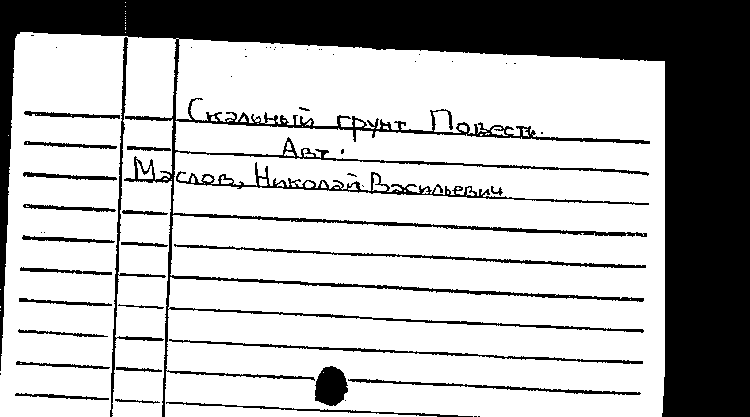 Скальный грунт. Повесть.
Авт.:
Маслов, Николай Васильевич